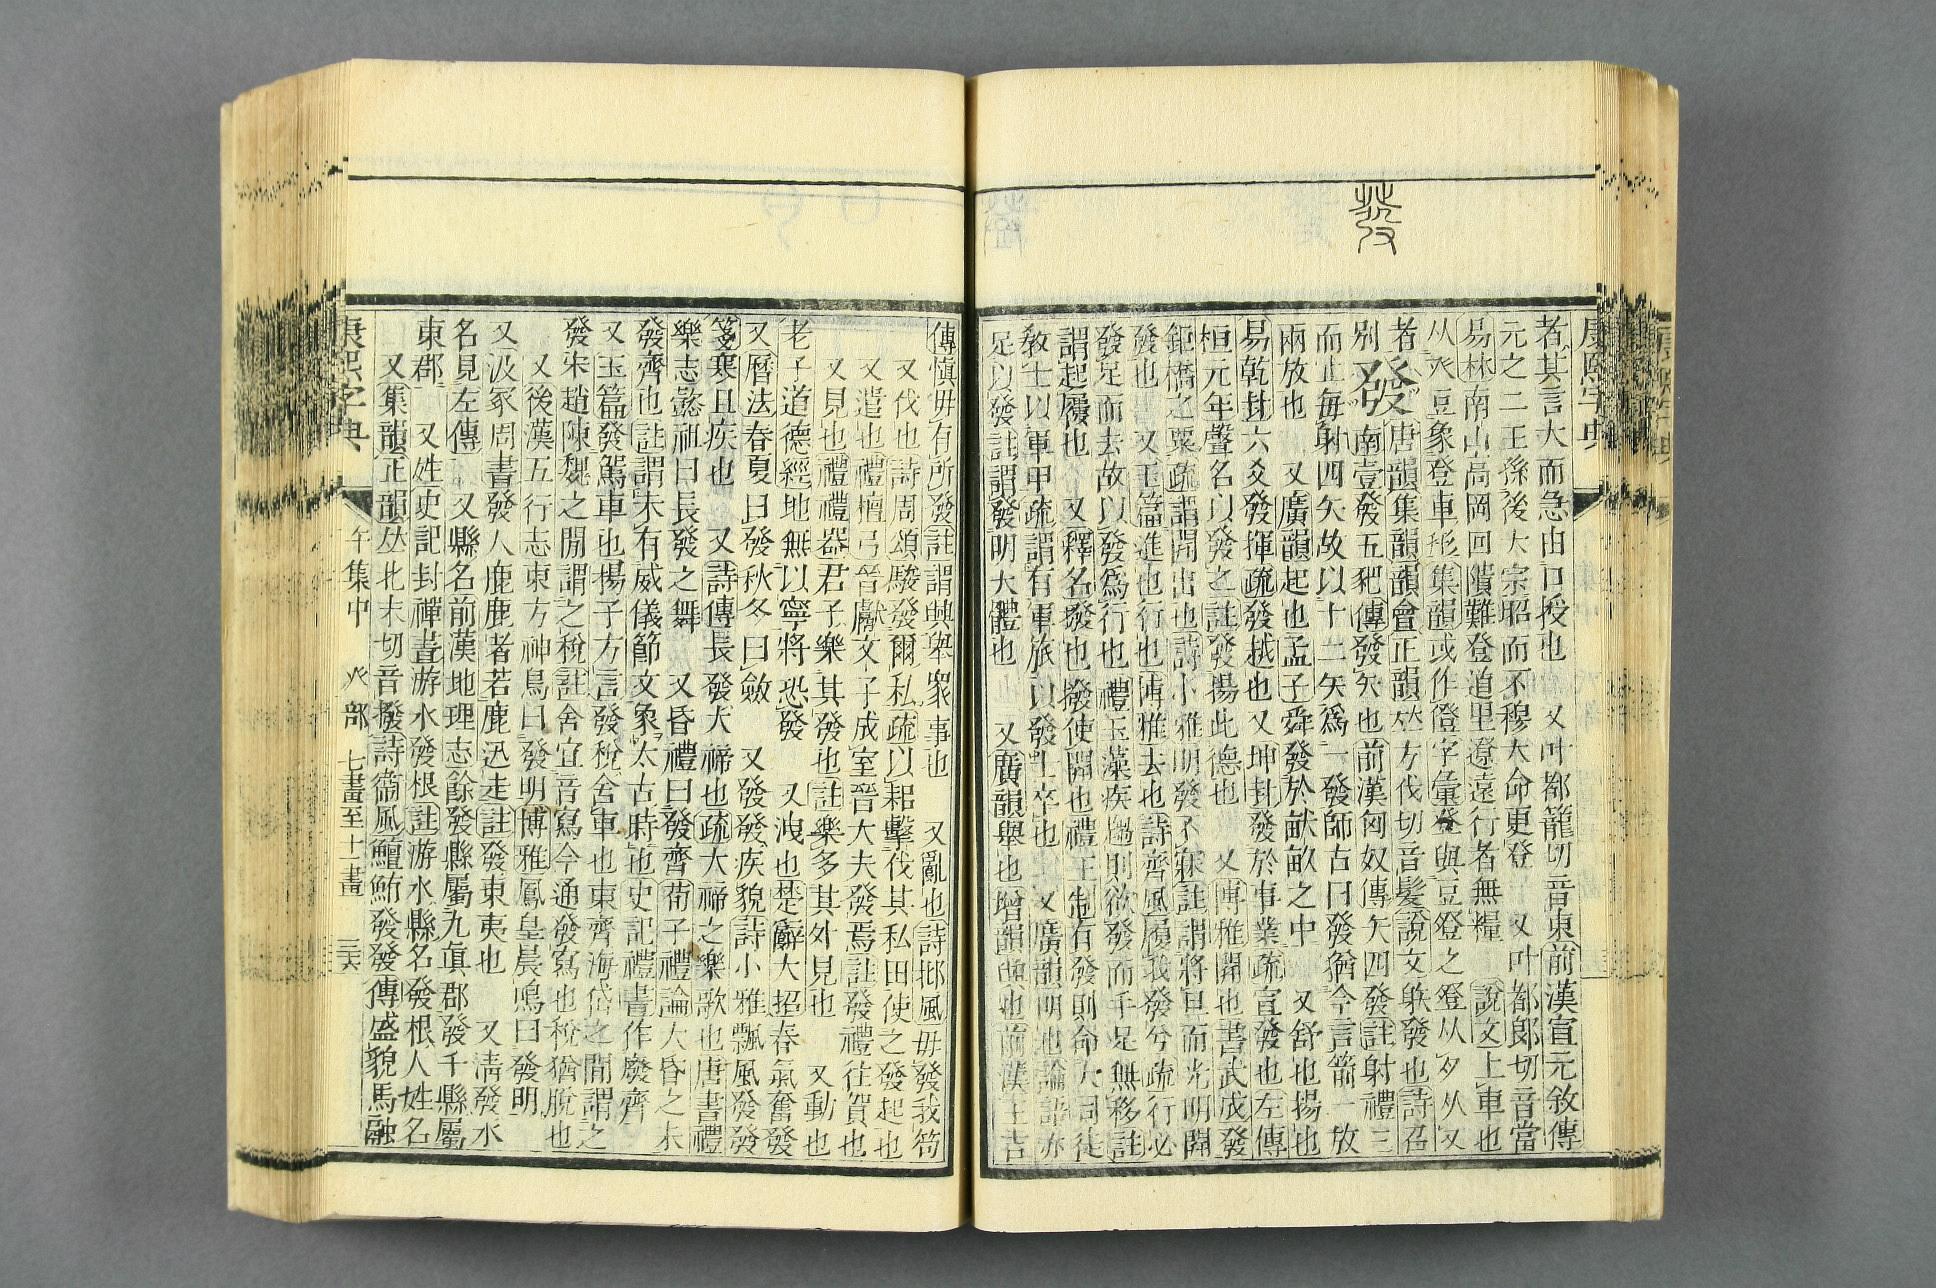 發
康熙字典
者其言大而急由口授也 又叶都籠切音東前漢宣元敘傳
元之二王孫後大宗昭而不穆大命更登 又叶都郎切音當
易林南山高岡回隤難登道里遼遠行者無糧 說文上車也
从癶豆象登車形集韻或作僜字彙登與豆登之登从夕从又
者
別 發 唐韻集韻韻會正韻𠀤方伐切音髮說文躲發也詩召
南壹發五豝傳發矢也前漢匈奴傳矢四發註射禮三
而止每射四矢故以十二矢爲一發師古曰發猶今言箭一放
兩放也 又廣韻起也孟子舜發於畎畝之中 又舒也揚也
易乾卦六爻發揮疏發越也又坤卦發於事業疏宣發也左傳
桓元年聲名以發之註發揚此德也 又博雅開也書武成發
鉅橋之粟疏謂開出也詩小雅明發不寐註謂將旦而光明開
發也 又玉篇進也行也博雅去也詩齊風履我發兮疏行必
發足而去故以發爲行也禮玉藻疾趨則欲發而手足無移註
謂起屨也 又釋名撥也撥使開也禮王制有發則命大司徒
敎士以軍甲疏謂有軍旅以發士卒也 又廣韻明也論語亦
足以發註謂發明大體也 又廣韻舉也增韻也前漢王吉
傳愼毋有所發註謂興舉衆事也 又亂也詩邶風毋發我笱
又伐也詩周頌駿發爾私疏以耜擊伐其私田使之發起也
又遣也禮檀弓晉獻文子成室晉大夫發焉註發禮往賀也
又見也禮禮器君子樂其發也註樂多其外見也 又動也
老子道德經地無以寧將恐發 又洩也楚辭大招春氣奮發
又曆法春夏曰發秋冬曰斂 又發發疾貌詩小雅飄風發發
箋寒且疾也 又詩傳長發大禘也疏大禘之樂歌也唐書禮
樂志懿祖曰長發之舞 又昏禮曰發齊荀子禮論大昏之未
發齊也註謂未有威儀節文象太古時也史記禮書作廢齊
又玉篇發駕車也揚子方言發稅舍車也東齊海岱之閒謂之
發宋趙陳魏之閒謂之稅註舍宜音寫今通發寫也稅猶脫也
又後漢五行志東方神鳥曰發明博雅鳳皇晨鳴曰發明
又汲冢周書發人鹿鹿者若鹿迅走註發東夷也 又淸發水
名見左傳 又縣名前漢地理志餘發縣屬九眞郡發干縣屬
東郡 又姓史記封禪書游水發根註游水縣名發根人姓名
又集韻正韻𠀤北末切音撥詩衞風鱣鮪發發傳盛貌馬融
康熙字典 午集中 癶部 七畫至十一畫 三六